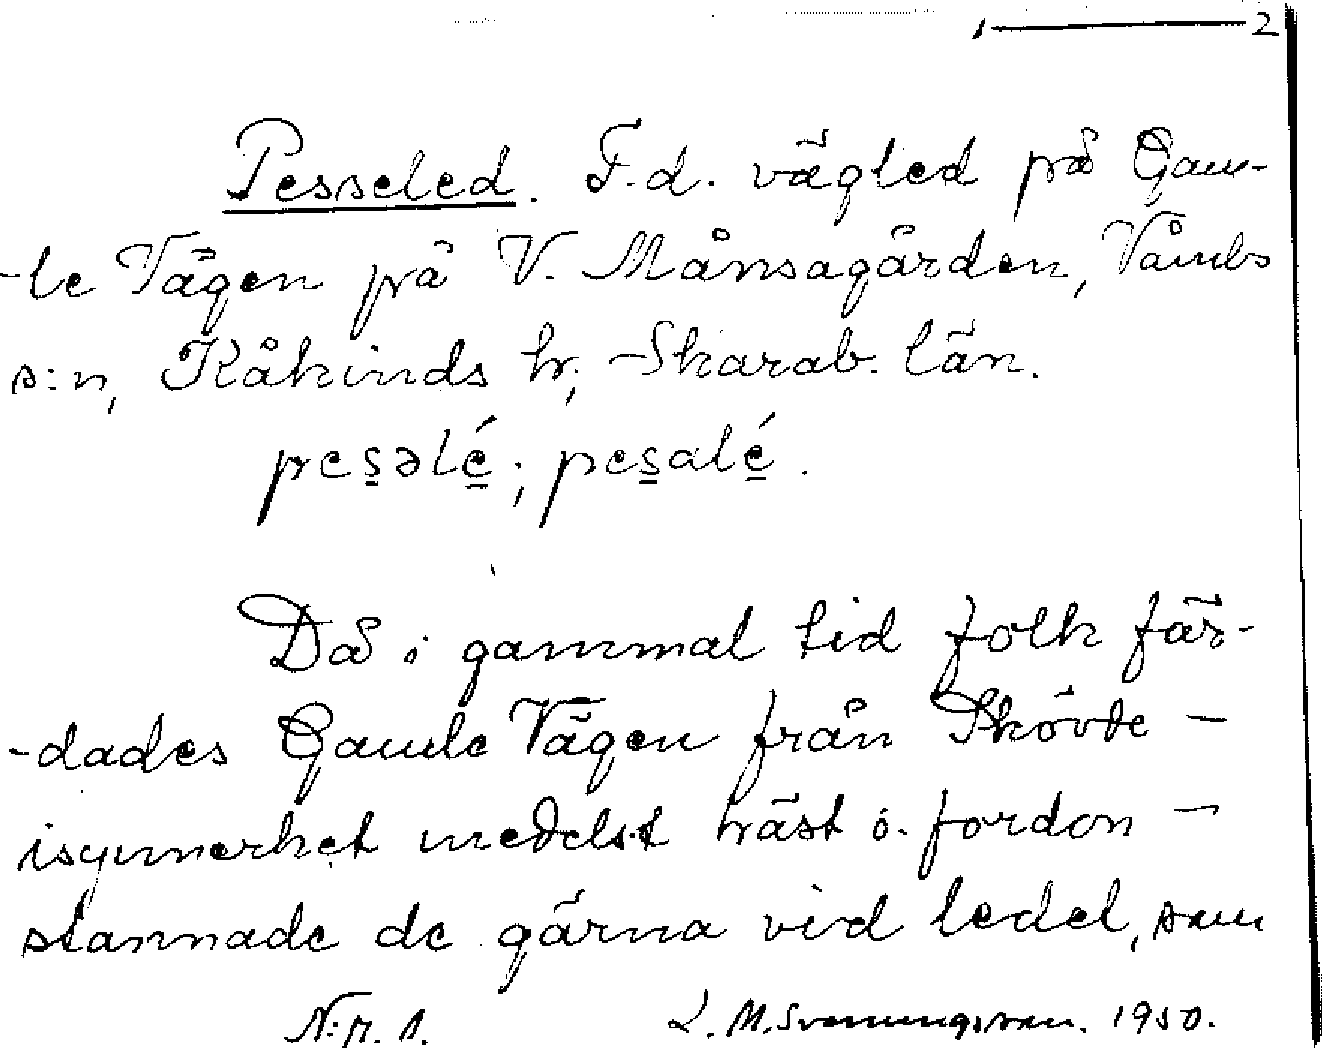 1 ——— 2
Pesseled. F.d. vägled på Gam-
-le Vägen på V. Månsagården, Våmbs
s:n, Kåkinds hr, Skarab. län.
pes̱əlé̱; pes̱alé̱.
Då i gammal tid folk fär-
-dades Gamle Vägen från Skövde –
isynnerhet medelst häst o. fordon –
stannade de gärna vid ledet, som
N:r. 1. L. M. Svenungsson. 1950.